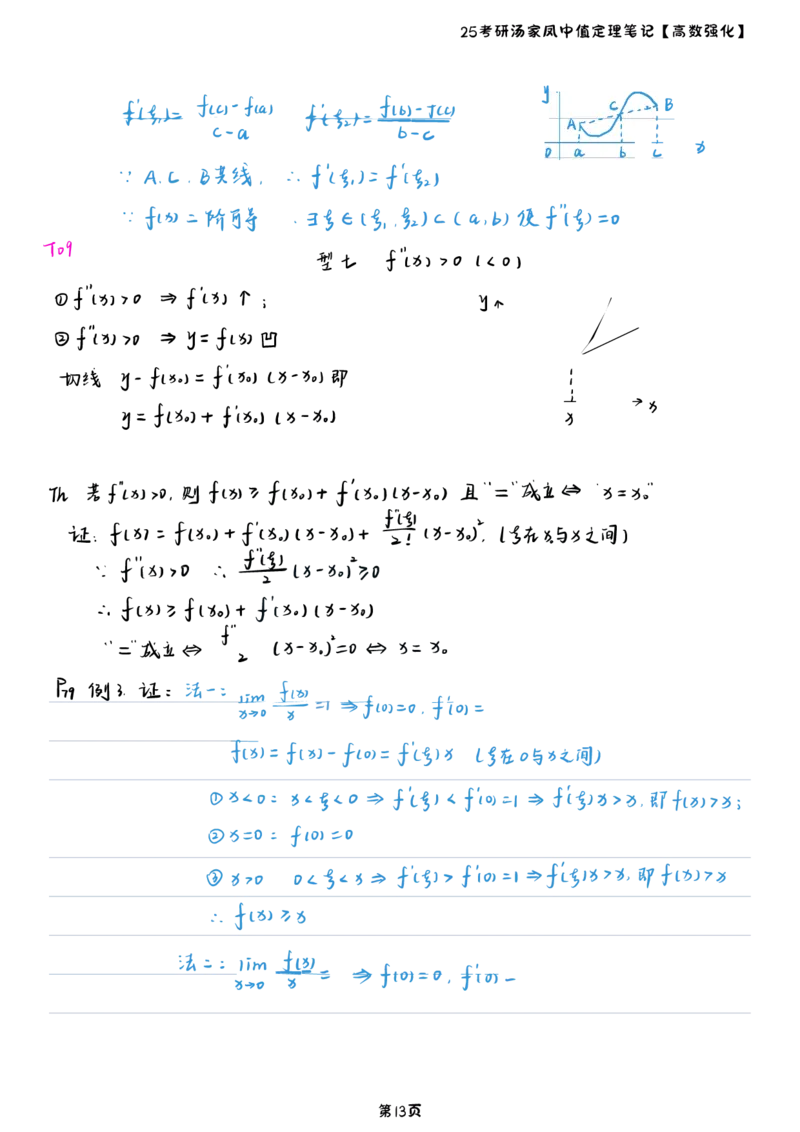 25考研汤家凤中值定理笔记【高数强化】
f'(ξ₁)= f(c)-f(a) / c-a    f'(ξ₂)= f(b)-f(c) / b-c
y A C B 0 a b c x
∵ A、C、B共线, ∴ f'(ξ₁)=f'(ξ₂)
∵ f(x)二阶可导 . ∃ξ∈(ξ₁,ξ₂)⊂(a,b)使f''(ξ)=0
T09
型七 f''(x)>0 (<0)
①f''(x)>0 ⇒ f'(x)↑;
y
②f''(x)>0 ⇒ y=f(x)凹
切线 y-f(x₀)=f'(x₀)(x-x₀)即
y=f(x₀)+f'(x₀)(x-x₀)
x x
Th 若f''(x)>0, 则 f(x)≥f(x₀)+f'(x₀)(x-x₀) 且"="成立⇔"x=x₀"
证: f(x)=f(x₀)+f'(x₀)(x-x₀)+ f''(ξ)/2! (x-x₀)², (ξ在x₀与x之间)
∵ f''(x)>0 ∴ f''(ξ)/2 (x-x₀)²≥0
∴ f(x)≥f(x₀)+f'(x₀)(x-x₀)
"="成立⇔ f'' 2 (x-x₀)²=0 ⇔ x=x₀
P79 例3. 证: 法一: lim x→0 f(x)/x =1 ⇒f(0)=0, f'(0)=
f(x)=f(x)-f(0)=f'(ξ)x (ξ在0与x之间)
①x<0: x<ξ<0⇒f'(ξ)<f'(0)=1⇒f'(ξ)x>x,即f(x)>x;
②x=0: f(0)=0
③x>0 0<ξ<x⇒f'(ξ)>f'(0)=1⇒f'(ξ)x>x,即f(x)>x
∴ f(x)≥x
法二: lim x→0 f(x)/x = ⇒f(0)=0, f'(0)-
第13页